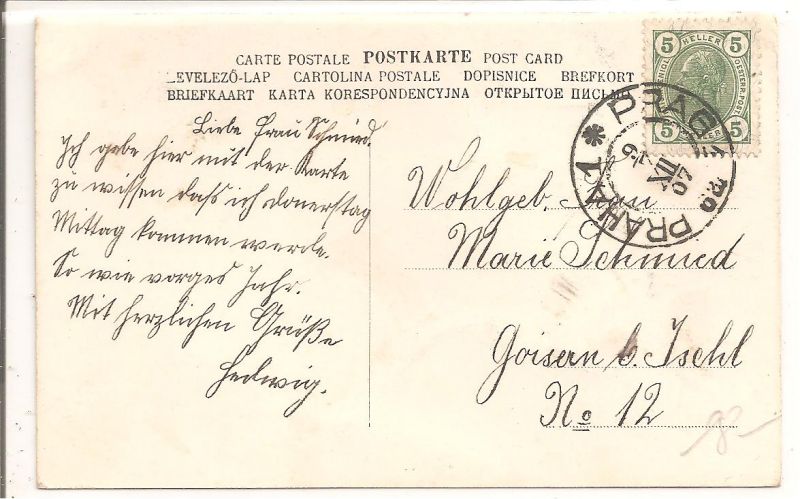 CARTE POSTALE POSTKARTE POST CARD
LEVELEZŐ-LAP CARTOLINA POSTALE DOPISNICE BREFKORT
BRIEFKAART KARTA KORESPONDENCYJNA ОТКРЫТОЕ ПИСЬМО
5 HELLER 5
5 HELLER 5
PRAG 1
VIII 07
PRAHA 1
Liebe Frau Schmied.
Ich gebe hier mit der Karte
zu wissen dass ich donerstag
Mittag kommen werde.
So wie vorges Jahr.
Mit herzlichen Grüße
Hedwig.
Wohlgeb. Frau
Marie Schmied
Goisern b. Ischl
No 12